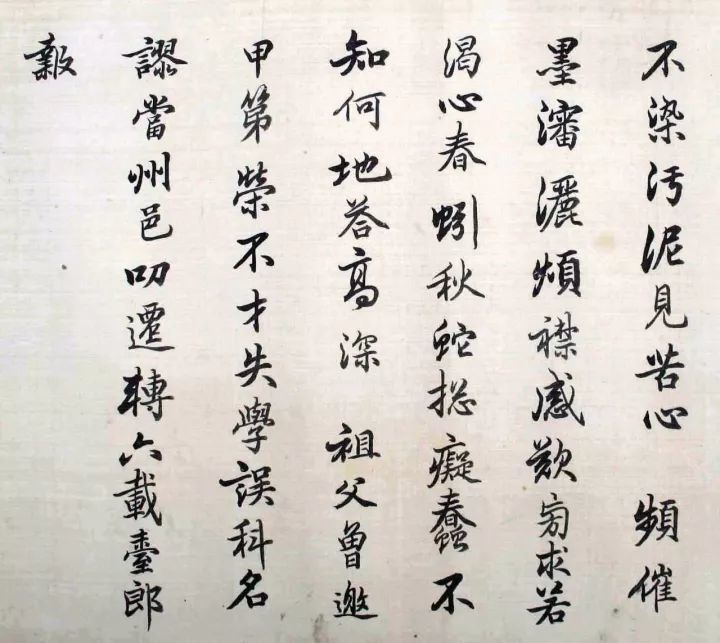 不染污泥見苦心　頻催
墨瀋灑煩襟感歎旁求若
渴心春蚓秋蛇捴癡蠢不
知何地荅高深　祖父曾邀
甲第榮不才失學誤科名
謬當州邑叨遷轉六載臺郎
報